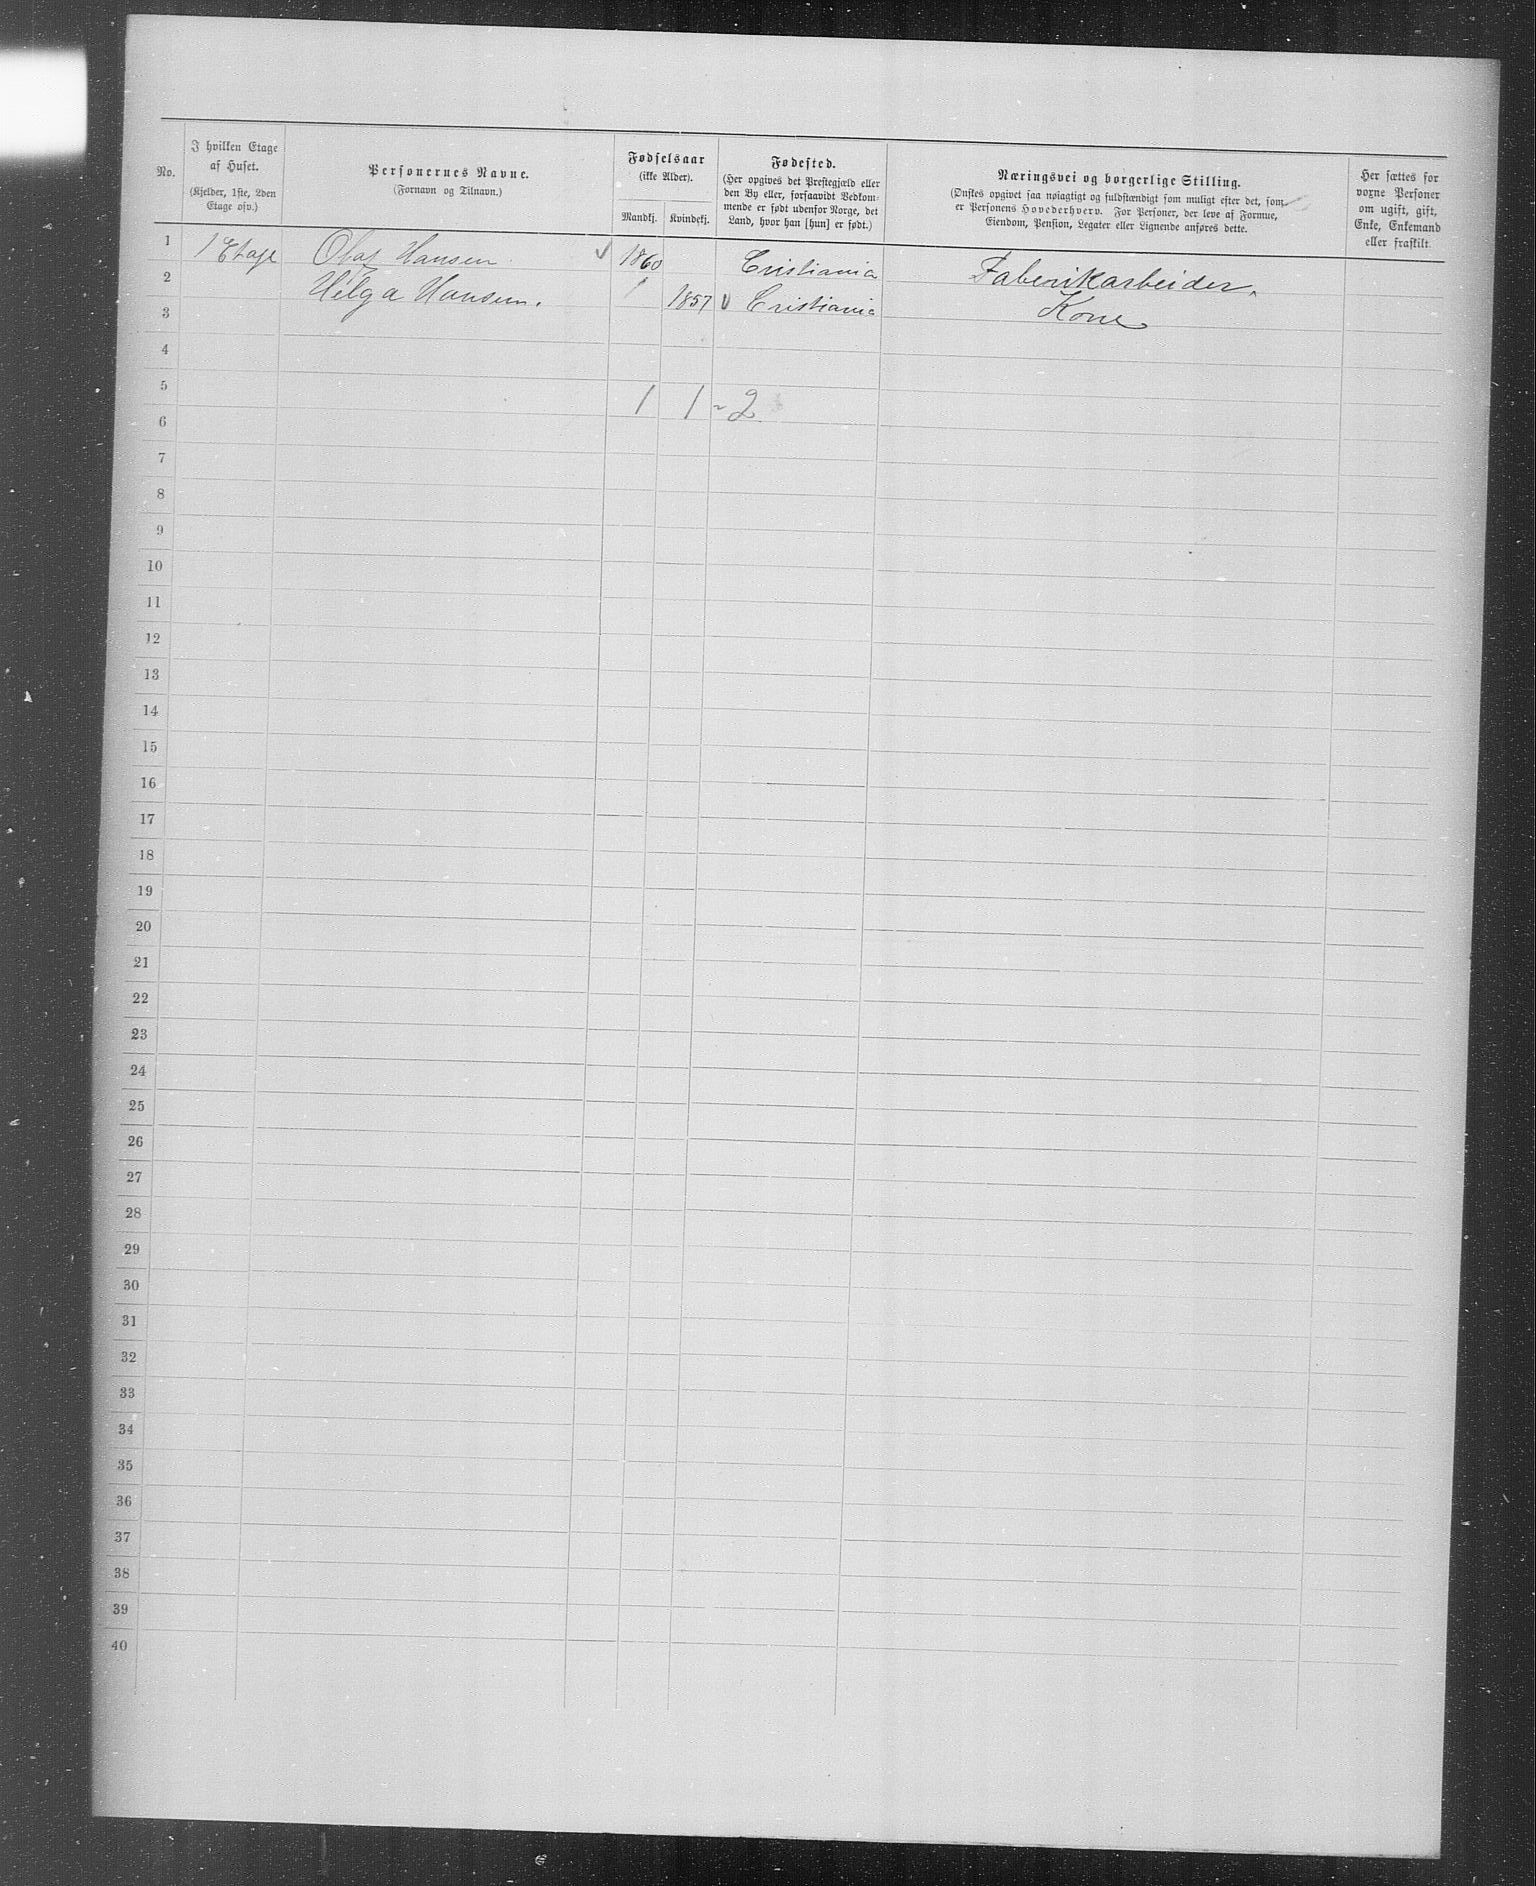 No.
I hvilken Etage
af Huset.
(Kjelder, 1ste, 2den
Etage osv.)
Personernes Navne.
(Fornavn og Tilnavn.)
Fødselsaar
(ikke Alder).
Mandkj. Kvindekj.
Fødested.
(Her opgives det Prestegjæld eller
den By eller, forsaavidt Vedkom-
mende er født udenfor Norge, det
Land, hvor han [hun] er født.)
Næringsvei og borgerlige Stilling.
(Ønskes opgivet saa nøiagtigt og fuldstændigt som muligt efter det, som
er Personens Hovederhverv. For Personer, der leve af Formue,
Eiendom, Pension, Legater eller Lignende anføres dette.
Her sættes for
voxne Personer
om ugift, gift,
Enke, Enkemand
eller fraskilt.
1 1 Etage Olaf Hansen 1860 Cristiania Faberikarbeider
2 Hilga Hansen. 1857 Cristiania Kone
3
4
5 1 1 - 2
6
7
8
9
10
11
12
13
14
15
16
17
18
19
20
21
22
23
24
25
26
27
28
29
30
31
32
33
34
35
36
37
38
39
40